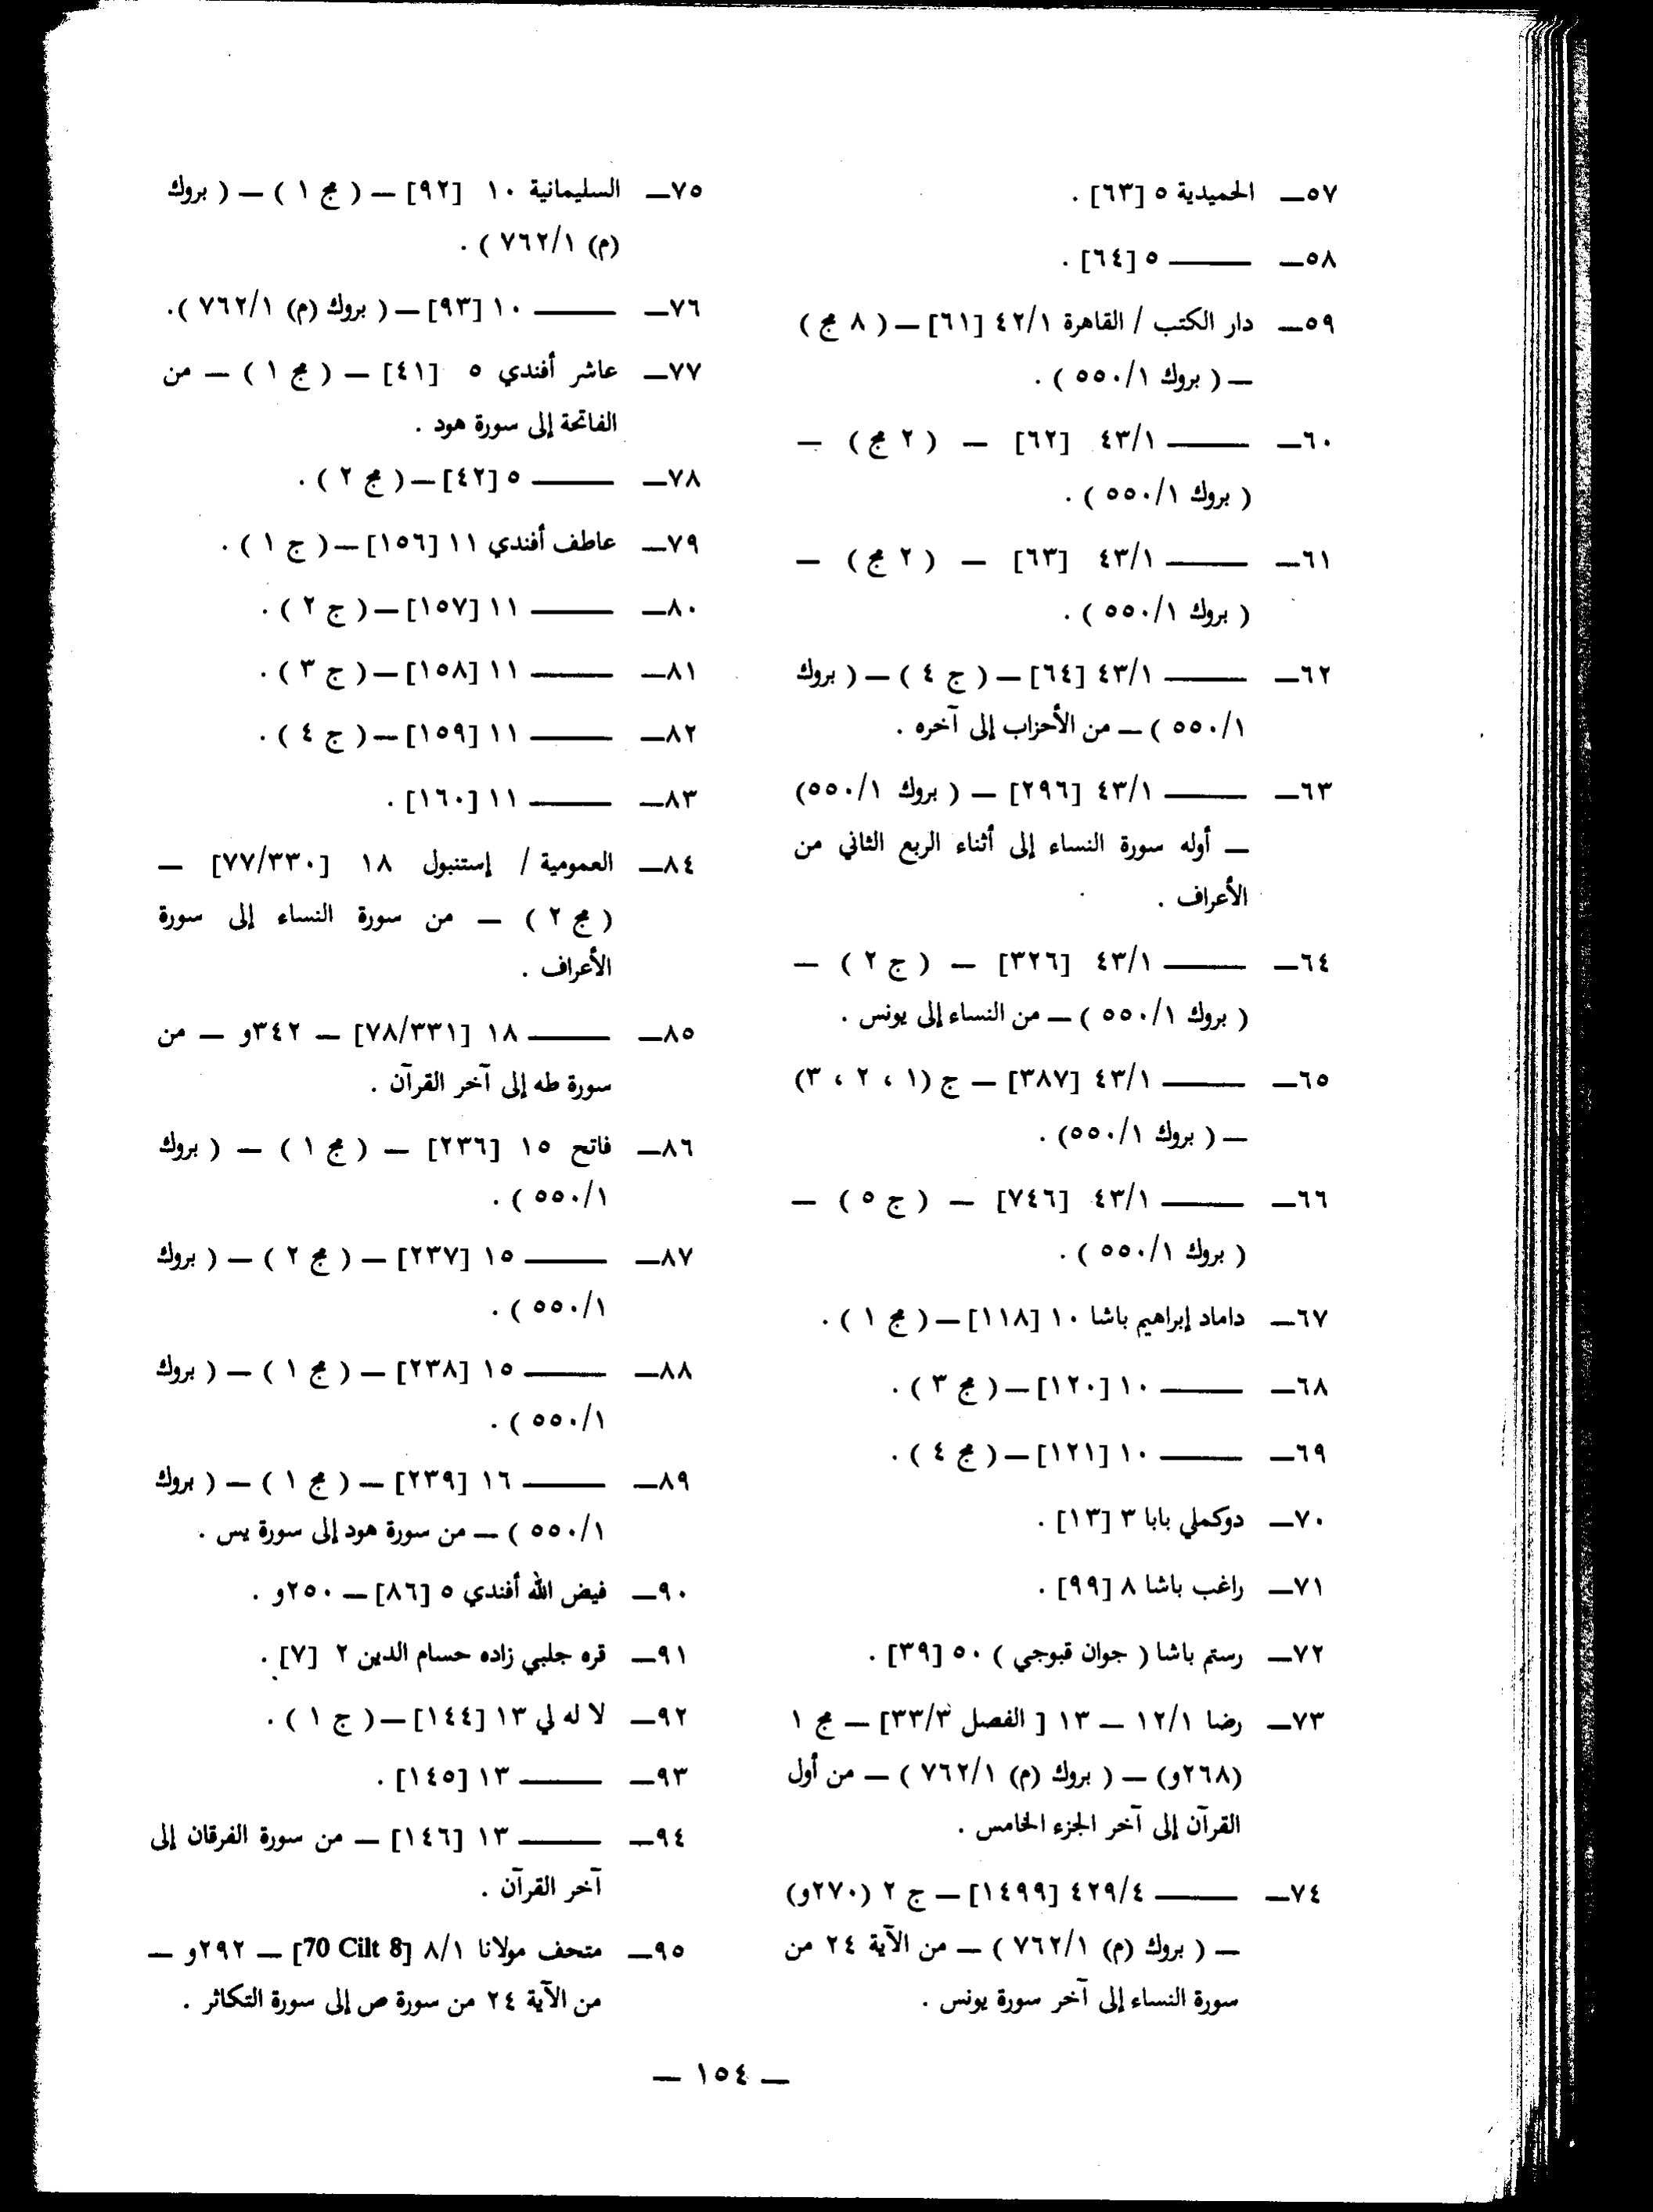 ٥٧ــ الحميدية ٥ [٦٣] .
٥٨ــ ـــــــ ٥ [٦٤] .
٥٩ــ دار الكتب / القاهرة ٤٢/١ [٦١] ــ ( ٨ مج )
ــ ( بروك ٥٥٠/١ ) .
٦٠ــ ـــــــ ٤٣/١ [٦٢] ــ ( ٢ مج ) ــ
( بروك ٥٥٠/١ ) .
٦١ــ ـــــــ ٤٣/١ [٦٣] ــ ( ٢ مج ) ــ
( بروك ٥٥٠/١ ) .
٦٢ــ ـــــــ ٤٣/١ [٦٤] ــ ( ج ٤ ) ــ ( بروك
٥٥٠/١ ) ــ من الأحزاب إلى آخره .
٦٣ــ ـــــــ ٤٣/١ [٢٩٦] ــ ( بروك ٥٥٠/١)
ــ أوله سورة النساء إلى أثناء الربع الثاني من
الأعراف .
٦٤ــ ـــــــ ٤٣/١ [٣٢٦] ــ ( ج ٢ ) ــ
( بروك ٥٥٠/١ ) ــ من النساء إلى يونس .
٦٥ــ ـــــــ ٤٣/١ [٣٨٧] ــ ج (١ ، ٢ ، ٣)
ــ ( بروك ٥٥٠/١) .
٦٦ــ ـــــــ ٤٣/١ [٧٤٦] ــ ( ج ٥ ) ــ
( بروك ٥٥٠/١ ) .
٦٧ــ داماد إبراهيم باشا ١٠ [١١٨] ــ ( مج ١ ) .
٦٨ــ ـــــــ ١٠ [١٢٠] ــ ( مج ٣ ) .
٦٩ــ ـــــــ ١٠ [١٢١] ــ ( مج ٤ ) .
٧٠ــ دوكملي بابا ٣ [١٣] .
٧١ــ راغب باشا ٨ [٩٩] .
٧٢ــ رستم باشا ( جوان قبوجي ) ٥٠ [٣٩] .
٧٣ــ رضا ١٢/١ ــ ١٣ [ الفصل ٣٣/٣] ــ مج ١
(٢٦٨و) ــ ( بروك (م) ٧٦٢/١ ) ــ من أول
القرآن إلى آخر الجزء الخامس .
٧٤ــ ـــــــ ٤٢٩/٤ [١٤٩٩] ــ ج ٢ (٢٧٠و)
ــ ( بروك (م) ٧٦٢/١ ) ــ من الآية ٢٤ من
سورة النساء إلى آخر سورة يونس .
٧٥ــ السليمانية ١٠ [٩٢] ــ ( مج ١ ) ــ ( بروك
(م) ٧٦٢/١ ) .
٧٦ــ ـــــــ ١٠ [٩٣] ــ ( بروك (م) ٧٦٢/١ ).
٧٧ــ عاشر أفندي ٥ [٤١] ــ ( مج ١ ) ــ من
الفاتحة إلى سورة هود .
٧٨ــ ـــــــ ٥ [٤٢] ــ ( مج ٢ ) .
٧٩ــ عاطف أفندي ١١ [١٥٦] ــ ( ج ١ ) .
٨٠ــ ـــــــ ١١ [١٥٧] ــ ( ج ٢ ) .
٨١ــ ـــــــ ١١ [١٥٨] ــ ( ج ٣ ) .
٨٢ــ ـــــــ ١١ [١٥٩] ــ ( ج ٤ ) .
٨٣ــ ـــــــ ١١ [١٦٠] .
٨٤ــ العمومية / إستنبول ١٨ [٧٧/٣٣٠] ــ
( مج ٢ ) ــ من سورة النساء إلى سورة
الأعراف .
٨٥ــ ـــــــ ١٨ [٧٨/٣٣١] ــ ٣٤٢و ــ من
سورة طه إلى آخر القرآن .
٨٦ــ فاتح ١٥ [٢٣٦] ــ ( مج ١ ) ــ ( بروك
٥٥٠/١ ) .
٨٧ــ ـــــــ ١٥ [٢٣٧] ــ ( مج ٢ ) ــ ( بروك
٥٥٠/١ ) .
٨٨ــ ـــــــ ١٥ [٢٣٨] ــ ( مج ١ ) ــ ( بروك
٥٥٠/١ ) .
٨٩ــ ـــــــ ١٦ [٢٣٩] ــ ( مج ١ ) ــ ( بروك
٥٥٠/١ ) ــ من سورة هود إلى سورة يس .
٩٠ــ فيض الله أفندي ٥ [٨٦] ــ ٢٥٠و .
٩١ــ قره جلبي زاده حسام الدين ٢ [٧] .
٩٢ــ لا له لي ١٣ [١٤٤] ــ ( ج ١ ) .
٩٣ــ ـــــــ ١٣ [١٤٥] .
٩٤ــ ـــــــ ١٣ [١٤٦] ــ من سورة الفرقان إلى
آخر القرآن .
٩٥ــ متحف مولانا ٨/١ [70 Cilt 8] ــ ٢٩٢و ــ
من الآية ٢٤ من سورة ص إلى سورة التكاثر .
ــ ١٥٤ ــ